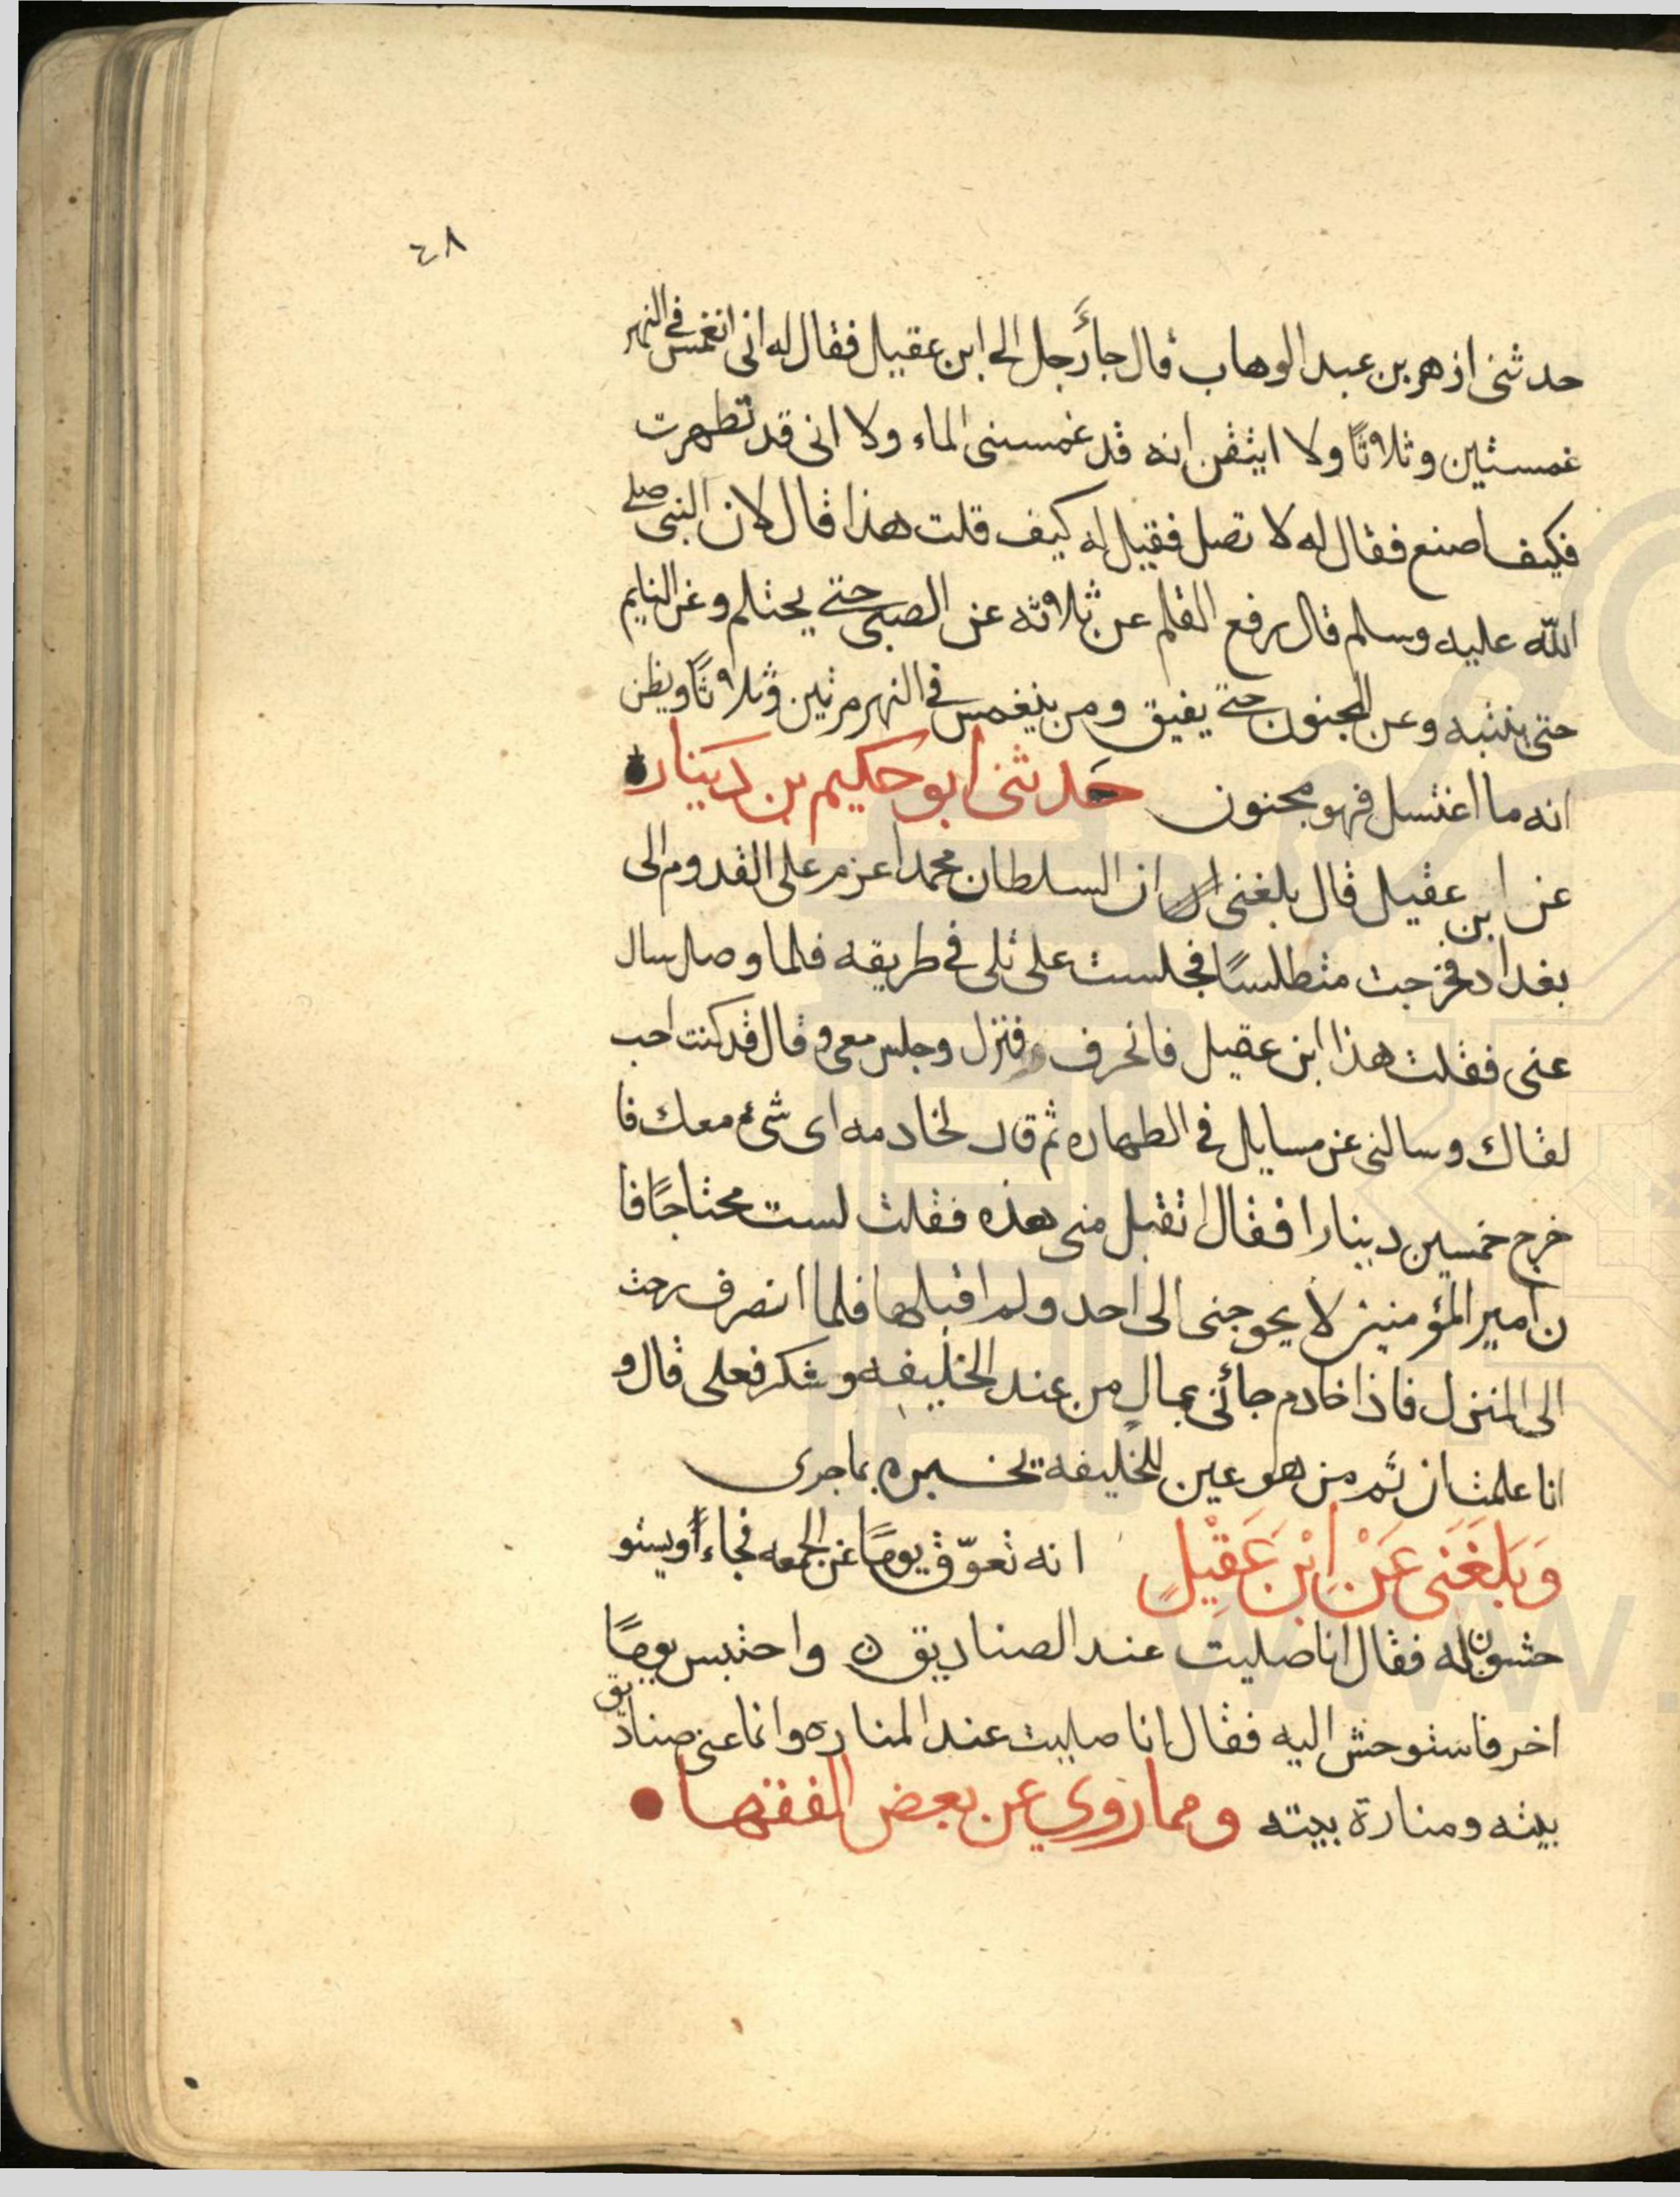 ٤٨
حدثنى ازهر بن عبد الوهاب قال جاء رجل الى ابن عقيل فقال له انى انغمس فى النهر
غمستين وثلاثًا ولا ايتقن انه قد غمسنى الماء ولا انى قد تطهرت
فكيف اصنع فقال له لا تصل فقيل له كيف قلت هذا قال لان النبى صلى
الله عليه وسلم قال رفع القلم عن ثلاثه عن الصبى حتى يحتلم وعن النايم
حتى ينتبه وعن المجنون حتى يفيق ومن ينغمس فى النهر مرتين وثلاثًا ويظن
انه ما اغتسل فهو مجنون حدثنى ابو حكيم بن دينار
عن ابن عقيل قال بلغنى ان السلطان محمدا عزم على القدوم الى
بغداد فخرجت متطلسًا فجلست على تلى فى طريقه فلما وصل سال
عنى فقلت هذا ابن عقيل فانحرف فنزل وجلس معى و قال قد كنت احب
لقاك وسالنى عن مسايل فى الطهاره ثم قال لخادمه اى شئ معك فا
خرج خمسين دينارا فقال اتقبل منى هذه فقلت لست محتاجًا فا
ن امير المؤمنين لا يحوجنى الى احد ولم اقبلها فلما انصرف رحت
الى المنزل فاذا خادم جائنى بمال من عند الخليفه وشكر فعلى قال و
انا علمت ان ثم من هو عين للخليفه يخبره بما جرى
وَبَلَغَنَى عَنْ اِبْنِ عَقِيْلٍ انه تعوّق يومًا عن الجمعه فجاء أويستو
حشون له فقال انا صليت عند الصناديق ن واحتبس يومًا
اخر فاستوحش اليه فقال انا صليت عند المناره وانما عنى صناديق
بيته ومنارة بيته ومما روى عن بعض الفقها